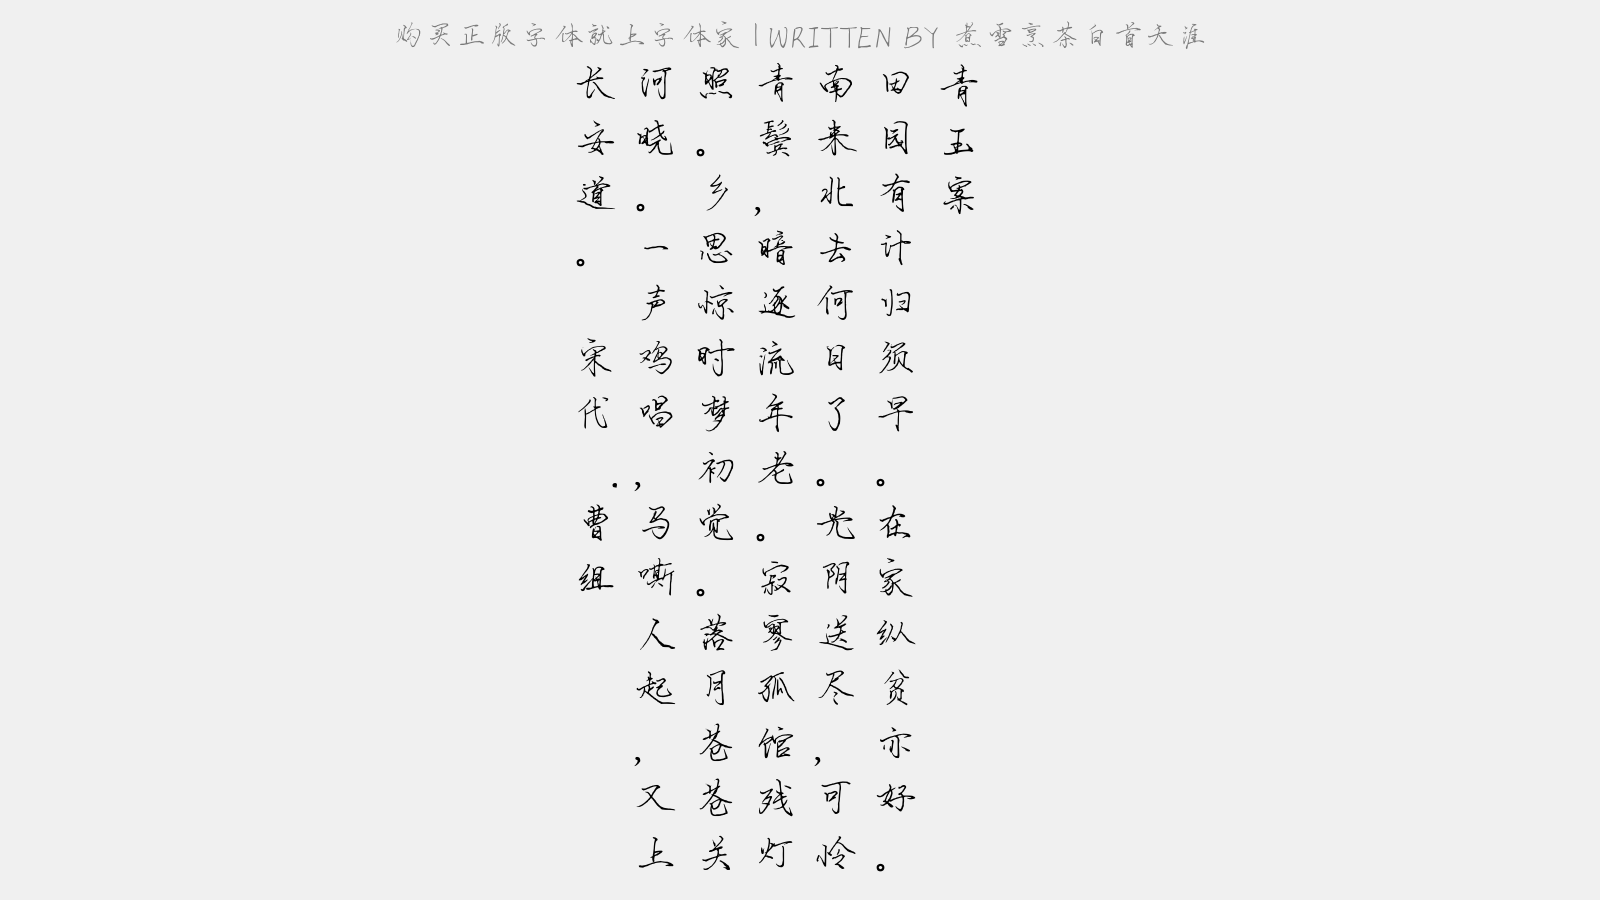 购买正版字体就上字体家 | WRITTEN BY 煮雪烹茶白首天涯
青玉案
田园有计归须早。在家纵贫亦好。
南来北去何日了。光阴送尽，可怜
青鬓，暗逐流年老。寂寥孤馆残灯
照。乡思惊时梦初觉。落月苍苍关
河晓。一声鸡唱，马嘶人起，又上
长安道。 宋代.曹组